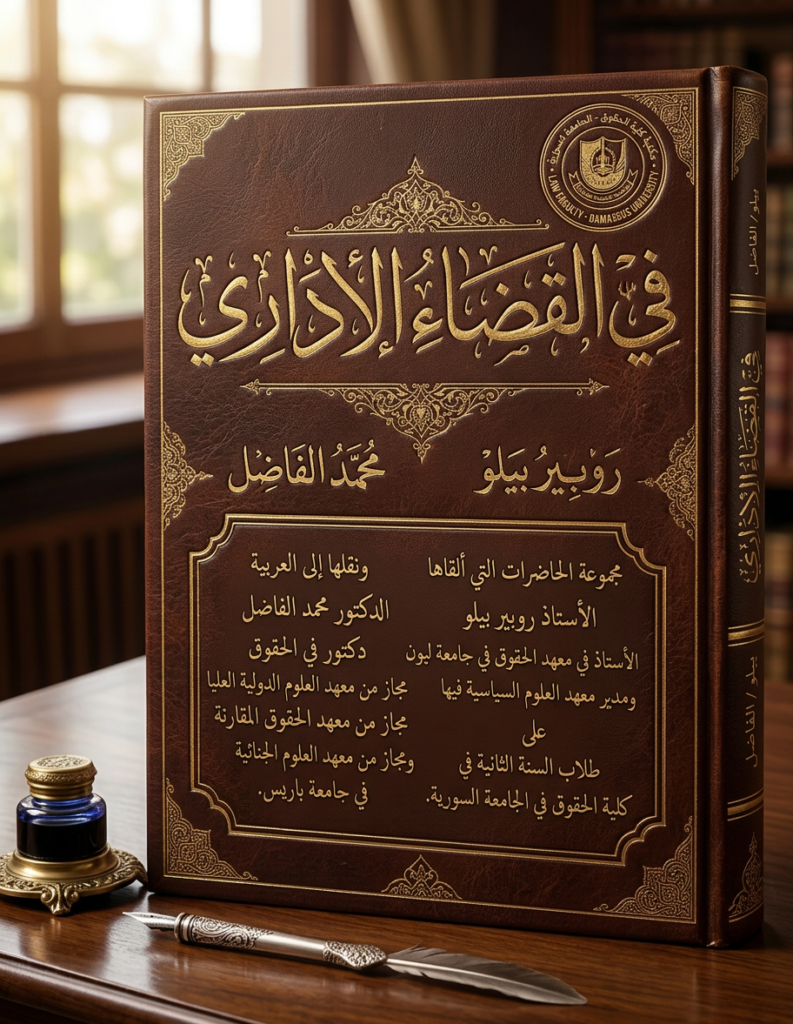 مكتبة كلية الحقوق - الجامعة
LAW FACULTY - DAMASCUS UNIVERSITY
فِي القَضَاءُ الإدَارِي
رَوبِيرُ بَيلَوْ
مُحمَّدُ الفَاضِل
مجموعة المحاضرات التي ألقاها
الأستاذ روبير بيلو
الأستاذ في معهد الحقوق في جامعة ليون
ومدير معهد العلوم السياسية فيها
على
طلاب السنة الثانية في
كلية الحقوق في الجامعة السورية.
ونقلها إلى العربية
الدكتور محمد الفاضل
دكتور في الحقوق
مجاز من معهد العلوم الدولية العليا
مجاز من معهد الحقوق المقارنة
ومجاز من معهد العلوم الجنائية
في جامعة باريس.
بيلو / الفاضل
في القضاء الأداري
بيلو / الفاضل